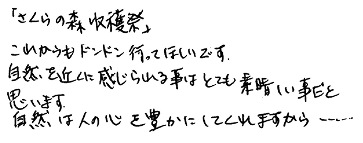 「さくらの森収穫祭」
これからもドンドン行ってほしいです.
自然を近くに感じられる事はとても素晴しい事だと
思います.
自然は人の心を豊かにしてくれますから……